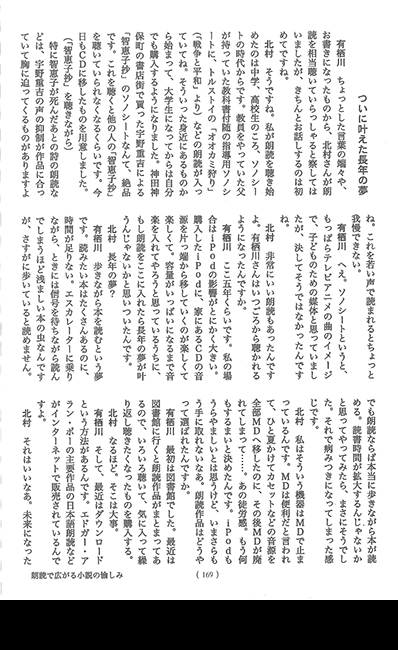 ついに叶えた長年の夢
有栖川　ちょっとした言葉の端々や、
お書きになったものから、北村さんが朗
読を相当聴いていらっしゃると察しては
いましたが、きちんとお話しするのは初
めてですね。
北村　そうですね。私が朗読を聴き始
めたのは中学、高校生のころ、ソノシー
トの時代からです。教員をやっていた父
が持っていた教科書付随の指導用ソノシ
ートに、トルストイの「オオカミ狩り」
（『戦争と平和』より）などの朗読が入っ
ていてね。そういった身近にあるものか
ら始まって、大学生になってからは自分
でも購入するようになりました。神田神
保町の書店街で買った宇野重吉による
『智恵子抄』のソノシートなんて、絶品
です。これを聴くと他の人の『智恵子抄』
を聴いていられなくなるくらいです。今
日もＣＤに移したものを用意しました。
（『智恵子抄』を聴きながら）
特に智恵子が死んだあとの詩の朗読な
どは、宇野重吉の声の抑制が作品に合っ
ていて胸に迫ってくるものがありますよ
ね。これを若い声で読まれるとちょっと
我慢できない。
有栖川　へえ。ソノシートというと、
もっぱらテレビアニメの曲のイメージ
で、子どものための媒体と思っていまし
たが、決してそうではなかったんです
ね。
北村　非常にいい朗読もあったんです
よ。有栖川さんはいつごろから聴かれる
ようになったんですか。
有栖川　ここ五年くらいです。私の場
合はｉＰｏｄの影響がとにかく大きい。
購入したｉＰｏｄに、家にあるＣＤの音
源を片っ端から移していくのが楽しくて
楽しくて。容量がいっぱいになるまで音
楽を入れてやろうと思っているうちに、
もし朗読をここに入れたら長年の夢が叶
うんじゃないかと思いついたんです。
北村　長年の夢？
有栖川　歩きながら本を読むという夢
です。読みたい本はたくさんあるのに、
時間が足りない。エスカレーターに乗り
ながら、ときには信号を待ちながら読ん
でしまうほど浅ましい本の虫なんです
が、さすがに歩いていると読めません。
でも朗読ならば本当に歩きながら本が読
める。読書時間が拡大するんじゃないか
と思ってやってみたら、まさにそうでし
た。それで病みつきになってしまった感
じです。
北村　私はそういう機器はＭＤで止ま
っているんです。ＭＤは便利だと言われ
て、ひと夏かけてカセットなどの音源を
全部ＭＤへ移したのに、その後ＭＤが廃
れてしまって……。あの徒労感。もう何
もするまいと決めたんです。ｉＰｏｄも
うらやましいとは思うけど、いまさらも
う手に取れないなあ。朗読作品はどうや
って選ばれたんですか。
有栖川　最初は図書館でした。最近は
図書館に行くと朗読作品がまとまってあ
るので、いろいろ聴いて、気に入って繰
り返し聴きたくなったものを購入する。
北村　なるほど。そこは大事。
有栖川　そして、最近はダウンロード
という方法があるんです。エドガー・ア
ラン・ポーの主要作品の日本語朗読など
がインターネットで販売されているんで
すよ。
北村　それはいいなあ。未来になった
（169）
朗読で広がる小説の愉しみ